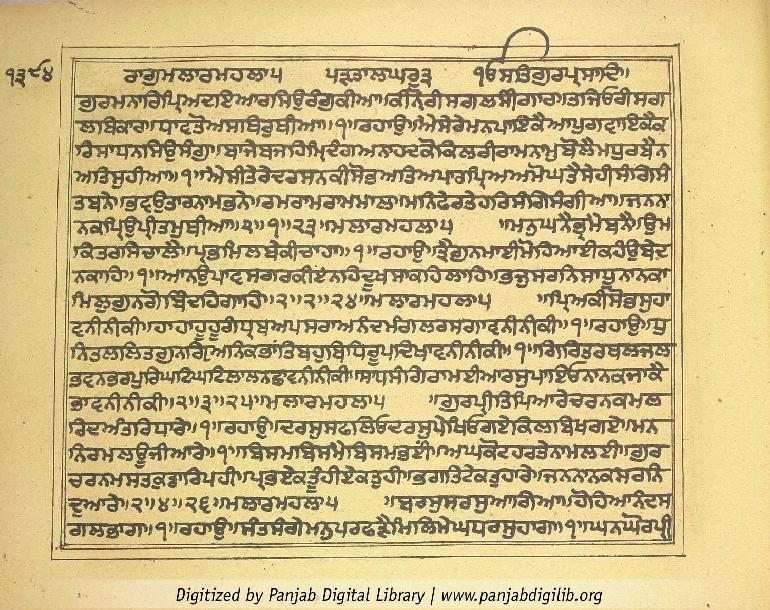 ੧੩੯੪
ਰਾਗੁਮਲਾਰਮਹਲਾ੫ ਪੜਤਾਲਘਰੁ੩ ੴਸਤਿਗੁਰਪ੍ਰਸਾਦਿ॥
ਗੁਰਮਨਾਰਿਪ੍ਰਿਅਦਇਆਰਸਿਉਰੰਗੁਕੀਆ॥ਕੀਨੋਰੀਸਗਲਸੀਗਾਰ॥ਤਜਿਓਰੀਸਗ
ਲਬਿਕਾਰ॥ਧਾਵਤੋਅਸਥਿਰੁਥੀਆ॥੧॥ਰਹਾਉ॥ਐਸੇਰੇਮਨਪਾਇਕੈਆਪੁਗਵਾਇਕੈਕ
ਰਿਸਾਧਨਸਿਉਸੰਗੁ॥ਬਾਜੇਬਜਹਿਮ੍ਰਿਦੰਗਅਨਾਹਦਕੋਕਿਲਰੀਰਾਮਨਾਮੁਬੋਲੈਮਧੁਰਬੈਨ
ਅਤਿਸੁਹੀਆ॥੧॥ਐਸੀਤੇਰੇਦਰਸਨਕੀਸੋਭਅਤਿਅਪਾਰਪ੍ਰਿਅਅਮੋਘਤੈਸੇਹੀਸੰਗਿਸੰ
ਤਬਨੇ॥ਭਵਉਤਾਰਨਾਮਭਨੇ॥ਰਮਰਾਮਰਾਮਮਾਲ॥ਮਨਿਫੇਰਤੇਹਰਿਸੰਗਿਸੰਗੀਆ॥ਜਨਨਾ
ਨਕਪ੍ਰਿਉਪ੍ਰੀਤਮੁਥੀਆ॥੨॥੧॥੨੩॥ਮਲਾਰਮਹਲਾ੫ ॥ਮਨੁਘਨੈਭ੍ਰਮੈਬਨੈ॥ਉਮ
ਕਿਤਰਸਿਚਾਲੈ॥ਪ੍ਰਭਮਿਲਬੇਕੀਚਾਹ॥੧॥ਰਹਾਉ॥ਤ੍ਰੈਗੁਨਮਾਈਮੋਹਿਆਈਕਹੰਉਬੇਦ
ਨਕਾਹਿ॥੧॥ਆਨਉਪਾਵਸਗਰਕੀਏਨਹਿਦੂਖਸਾਕਹਿਲਾਹਿ॥ਭਜੁਸਰਨਿਸਾਧੂਨਾਨਕਾ
ਮਿਲੁਗੁਨਗੋਬਿੰਦਹਿਗਾਹਿ॥੨॥੨॥੨੪॥ਮਲਾਰਮਹਲਾ੫ ॥ਪ੍ਰਿਅਕੀਸੋਭਸੁਹਾ
ਵਨੀਨੀਕੀ॥ਹਾਹਾਹੂਹੂਗੰਧ੍ਰਬਅਪਸਰਾਅਨੰਦਮੰਗਲਰਸਗਾਵਨੀਨੀਕੀ॥੧॥ਰਹਾਉ॥ਧੁ
ਨਿਤਲਲਿਤਗੁਨਗ੍ਯਿਅਨਿਕਭਾਂਤਿਬਹੁਬਿਧਿਰੂਪਦਿਖਾਵਨੀਨੀਕੀ॥੧॥ਗਿਰਿਤਰਥਲਜਲ
ਭਵਨਭਰਪੁਰਿਘਟਿਘਟਿਲਾਲਨਛਾਵਨੀਨੀਕੀ॥ਸਾਧਸੰਗਿਰਾਮਈਆਰਸੁਪਾਇਓਨਾਨਕਜਾਕੈ
ਭਾਵਨੀਨੀਕੀ॥੨॥੩॥੨੫॥ਮਲਾਰਮਹਲਾ੫ ॥ਗੁਰਪ੍ਰੀਤਿਪਿਆਰੇਚਰਨਕਮਲ
ਰਿਦਅੰਤਰਿਧਾਰੇ॥੧॥ਰਹਾਉ॥ਦਰਸੁਸਫਲਿਓਦਰਸੁਪੇਖਿਓਗਏਕਿਲਬਿਖਗਏ॥ਮਨ
ਨਿਰਮਲਉਜੀਆਰੇ॥੧॥ਬਿਸਮਬਿਸਮੈਬਿਸਮਭਈ॥ਅਘਕੋਟਹਰਤੇਨਾਮਲਈ॥ਗੁਰ
ਚਰਨਮਸਤਕੁਡਾਰਿਪਹੀ॥ਪ੍ਰਭਏਕਤੂੰਹੀਏਕਤੁਹੀ॥ਭਗਤਟੇਕਤੁਹਾਰੇ॥ਜਨਨਾਨਕਸਰਨਿ
ਦੁਆਰੇ॥੨॥੪॥੨੬॥ਮਲਾਰਮਹਲਾ੫ ॥ਬਰਸੁਸਰਸੁਆਗਿਆ॥ਹੋਹਿਆਨੰਦਸ
ਗਲਭਾਗ॥੧॥ਰਹਾਉ॥ਸੰਤਸੰਗੇਮਨੁਪਰਫੜੈਮਿਲਿਮੇਘਧਰਸੁਹਾਗ॥੧॥ਘਨਘੋਰਪ੍ਰੀ
Digitized by Panjab Digital Library | www.panjabdigilib.org